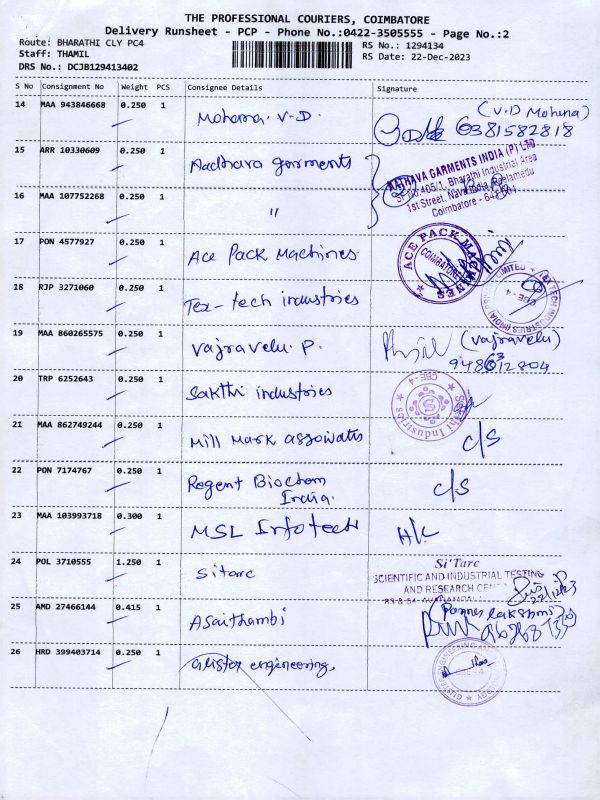 THE PROFESSIONAL COURIERS, COIMBATORE
Delivery Runsheet - PCP - Phone No.:0422-3505555 - Page No.:2
Route: BHARATHI CLY PC4
RS No.: 1294134
Staff: THAMIL
RS Date: 22-Dec-2023
DRS No.: DCJB129413402
S No Consignment No Weight PCS Consignee Details Signature
14 MAA 943846668 0.250 1 Mohana. V.D. (V.D Mohana)
6381582818
15 ARR 10330609 0.250 1 Aadhava garments
AATHAVA GARMENTS INDIA (P) LTD
SF.No.405/1, Bharathi Industrial Area
1st Street, Nava India, Peelamedu
Coimbatore - 641
16 MAA 107752268 0.250 1 "
17 PON 4577927 0.250 1 Ace Pack Machines
ACE PACK MACHINES
COIMBATORE
18 RJP 3271060 0.250 1 Tex-tech industries
TEXTECH INDUSTRIES (INDIA) LIMITED
CBE-4
19 MAA 860265575 0.250 1 Vajravelu. P. (Vajravelu)
20 TRP 6252643 0.250 1 Sakthi industries
Sakthi Industries
CBE-4
21 MAA 862749244 0.250 1 Mill Mark assowats C/S
22 PON 7174767 0.250 1 Regent Biochem C/S
India.
23 MAA 103993718 0.300 1 MSL Infotech H/C
24 POL 3710555 1.250 1 Sitarc
Si'Tarc
SCIENTIFIC AND INDUSTRIAL TESTING
AND RESEARCH
22/12/23
25 AMD 27466144 0.415 1 Asaithambi
26 HRD 399403714 0.250 1 engineering